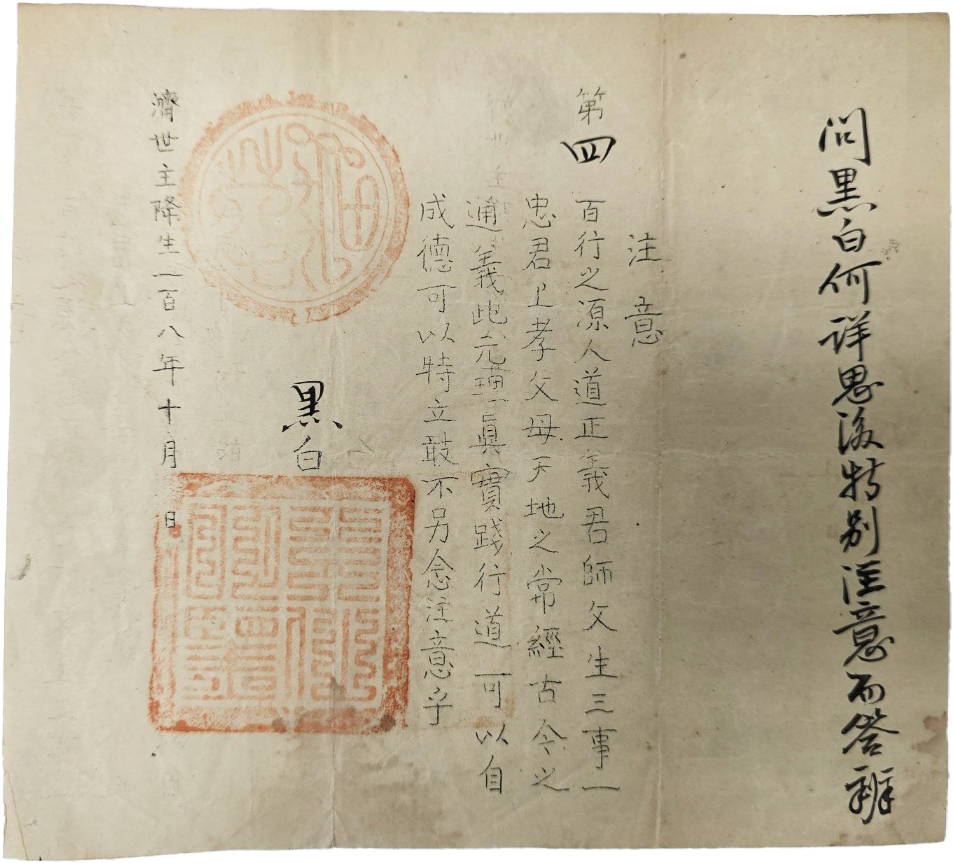 問黒白何詳思後特别注意而答辨
注意
第四 百行之源人道正義君師父生三事一
忠君上孝父母天地之常經古今之
通義此元理眞實踐行道可以自
成德可以特立敢不另念注意乎
黒白
濟世主降生一百八年十月 日